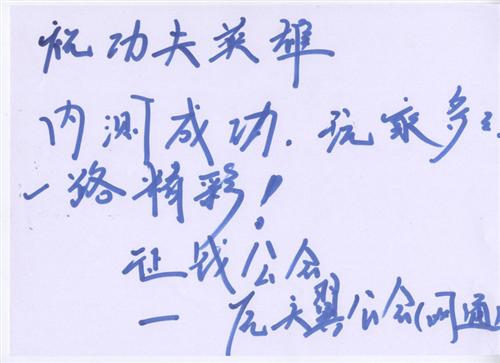 祝功夫英雄
内测成功.玩家多多
一路精彩!
公会
一 天翼公会(网通